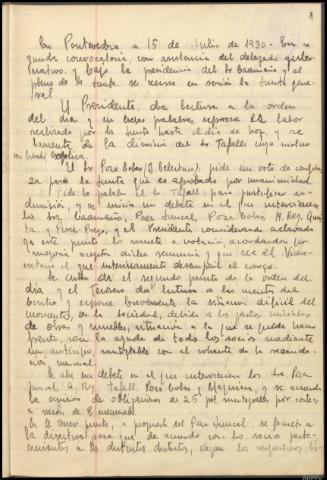 1
En Pontevedra, a 15 de Julio de 1930 - En se
gunda convocatoria, con asistencia del delegado guber
nativo, y bajo la presidencia del Sr Caamaño y el
pleno de la Junta, se reune en sesión la Junta gene
ral.
El Presidente, da lectura a la orden
del día y en breves palabras expresa la labor
realizada por la Junta hasta el día de hoy, y se
lamenta de la dimisión del Sr Tafall cuyo motivo
explica.
El Sr Poza Cobas (D. Celestino) pide un voto de confian
za para la Junta que es aprobado por unanimidad
Pide la palabra el Sr Tafall para justificar su
dimisión, y se inicia un debate en el que intervienen
los Sres. Caamaño, Poza Juncal, Poza Cobas, A. Rey,
y el Presidente considerando aclarado
ya este punto lo somete a votación acordandose por
mayoría aceptar dicha renuncia y que sea el Vicese
cretario el que interinamente desempeñe el cargo.
Se entra en el segundo punto de la orden del
día y el Tesorero da lectura a las cuentas del
Centro y expone brevemente la situación dificil del
momento, de la sociedad, debido a los gastos iniciales
de obras y muebles, situación a la que se puede hacer
frente, con la ayuda de todos los socios mediante
un anticipo, reintegrable con el sobrante de la recauda
ción mensual.
Se abre un debate en el que intervienen los Sres. Poza
Juncal, A. Rey, Tafall, Poza Cobas y y se acuerda
la emisión de obligaciones de 25 pts. reintegrables por sorteo
a razón de 8 mensuales.
En el tercer punto, a propuesta del Poza Juncal, se faculta a
la directiva para que de acuerdo con los socios perte
necientes a los distintos distritos, elijan los respectivos